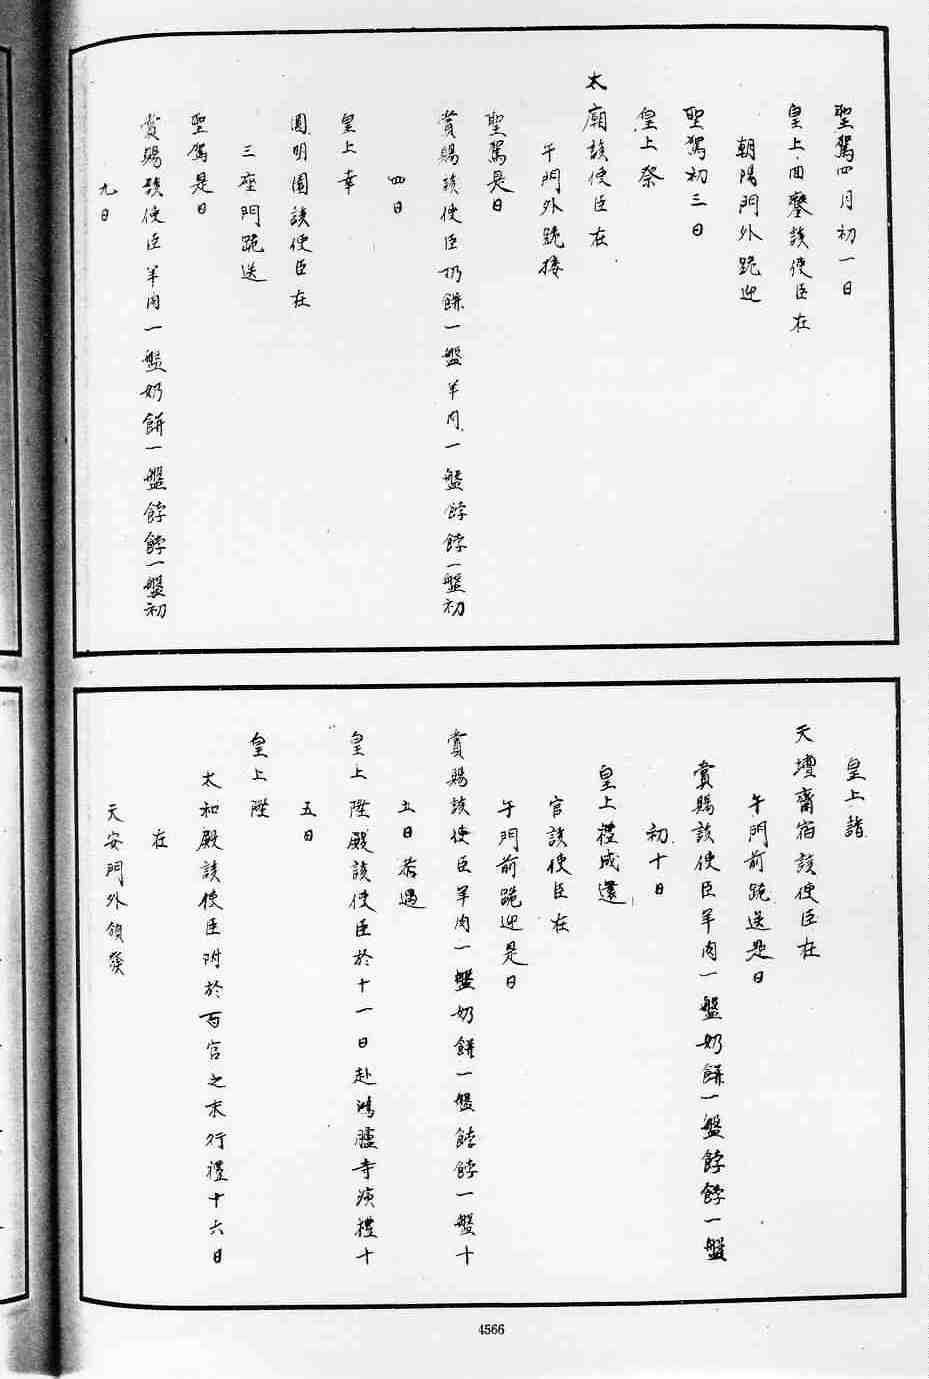 聖駕四月初一日
皇上回鑾該使臣在
朝陽門外跪迎
聖駕初三日
皇上祭
太廟該使臣在
午門外跪接
聖駕是日
賞賜該使臣奶餅一盤羊肉一盤餑餑一盤初
四日
皇上幸
圓明園該使臣在
三座門跪送
聖駕是日
賞賜該使臣羊肉一盤奶餅一盤餑餑一盤初
九日
皇上詣
天壇齋宿該使臣在
午門前跪送是日
賞賜該使臣羊肉一盤奶餅一盤餑餑一盤
初十日
皇上禮成還
宮該使臣在
午門前跪迎是日
賞賜該使臣羊肉一盤奶餅一盤餑餑一盤十
五日若遇
皇上陞殿該使臣於十一日赴鴻臚寺演禮十
五日
皇上陞
太和殿該使臣附於百官之末行禮十六日
在
天安門外領賞
4566